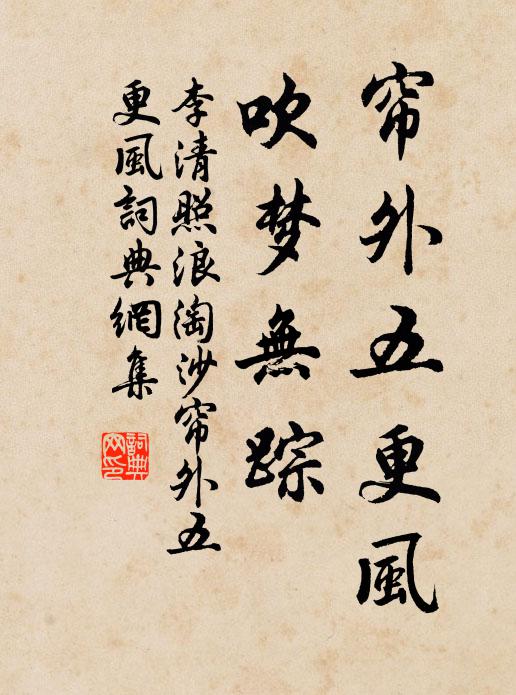 帘外五更風
吹梦無踪
李清照浪淘沙帘外五
更風詞典網集
詞典网印